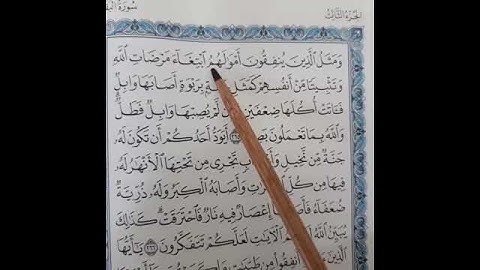 سُورَةُ
الجُزءُ الثَّالِثُ
وَمَثَلُ ٱلَّذِينَ يُنفِقُونَ أَمْوَٰلَهُمُ ٱبْتِغَآءَ مَرْضَاتِ ٱللَّهِ
وَتَثْبِيتًا مِّنْ أَنفُسِهِمْ كَمَثَلِ بِرَبْوَةٍ أَصَابَهَا وَابِلٌ
فَـَٔاتَتْ أُكُلَهَا ضِعْفَيْنِ لَّمْ يُصِبْهَا وَابِلٌ فَطَلٌّ
وَٱللَّهُ بِمَا تَعْمَلُونَ ٢٦٥ أَيَوَدُّ أَحَدُكُمْ أَن تَكُونَ لَهُۥ
جَنَّةٌ مِّن نَّخِيلٍ تَجْرِى مِن تَحْتِهَا ٱلْأَنْهَٰرُ لَهُۥ
فِيهَا مِن كُلِّ وَأَصَابَهُ ٱلْكِبَرُ وَلَهُۥ ذُرِّيَّةٌ
ضُعَفَآءُ إِعْصَارٌ فِيهِ نَارٌ فَٱحْتَرَقَتْ كَذَٰلِكَ
يُبَيِّنُ ٱللَّهُ ٱلْـَٔايَٰتِ لَعَلَّكُمْ تَتَفَكَّرُونَ ٢٦٦ يَٰٓأَيُّهَا
ٱلَّذِينَ أَنفِقُوا۟ مِن طَيِّبَٰتِ